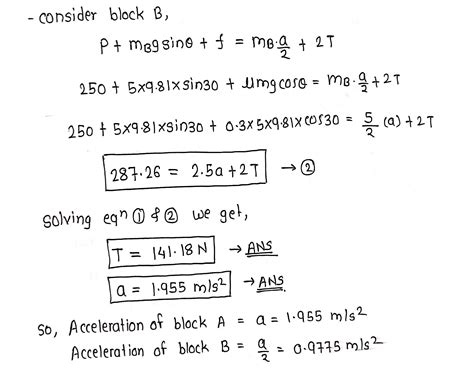 - consider block B,
P + mBg sinθ + f = mB.a/2 + 2T
250 + 5×9.81×sin30 + μmg cosθ = mB.a/2 + 2T
250 + 5×9.81×sin30 + 0.3×5×9.81×cos30 = 5/2 (a) + 2T
287.26 = 2.5a + 2T → ②
solving eqn ① & ② we get,
T = 141.18 N → ANS
a = 1.955 m/s² → ANS.
so, Acceleration of block A = a = 1.955 m/s²
Acceleration of block B = a/2 = 0.9775 m/s²